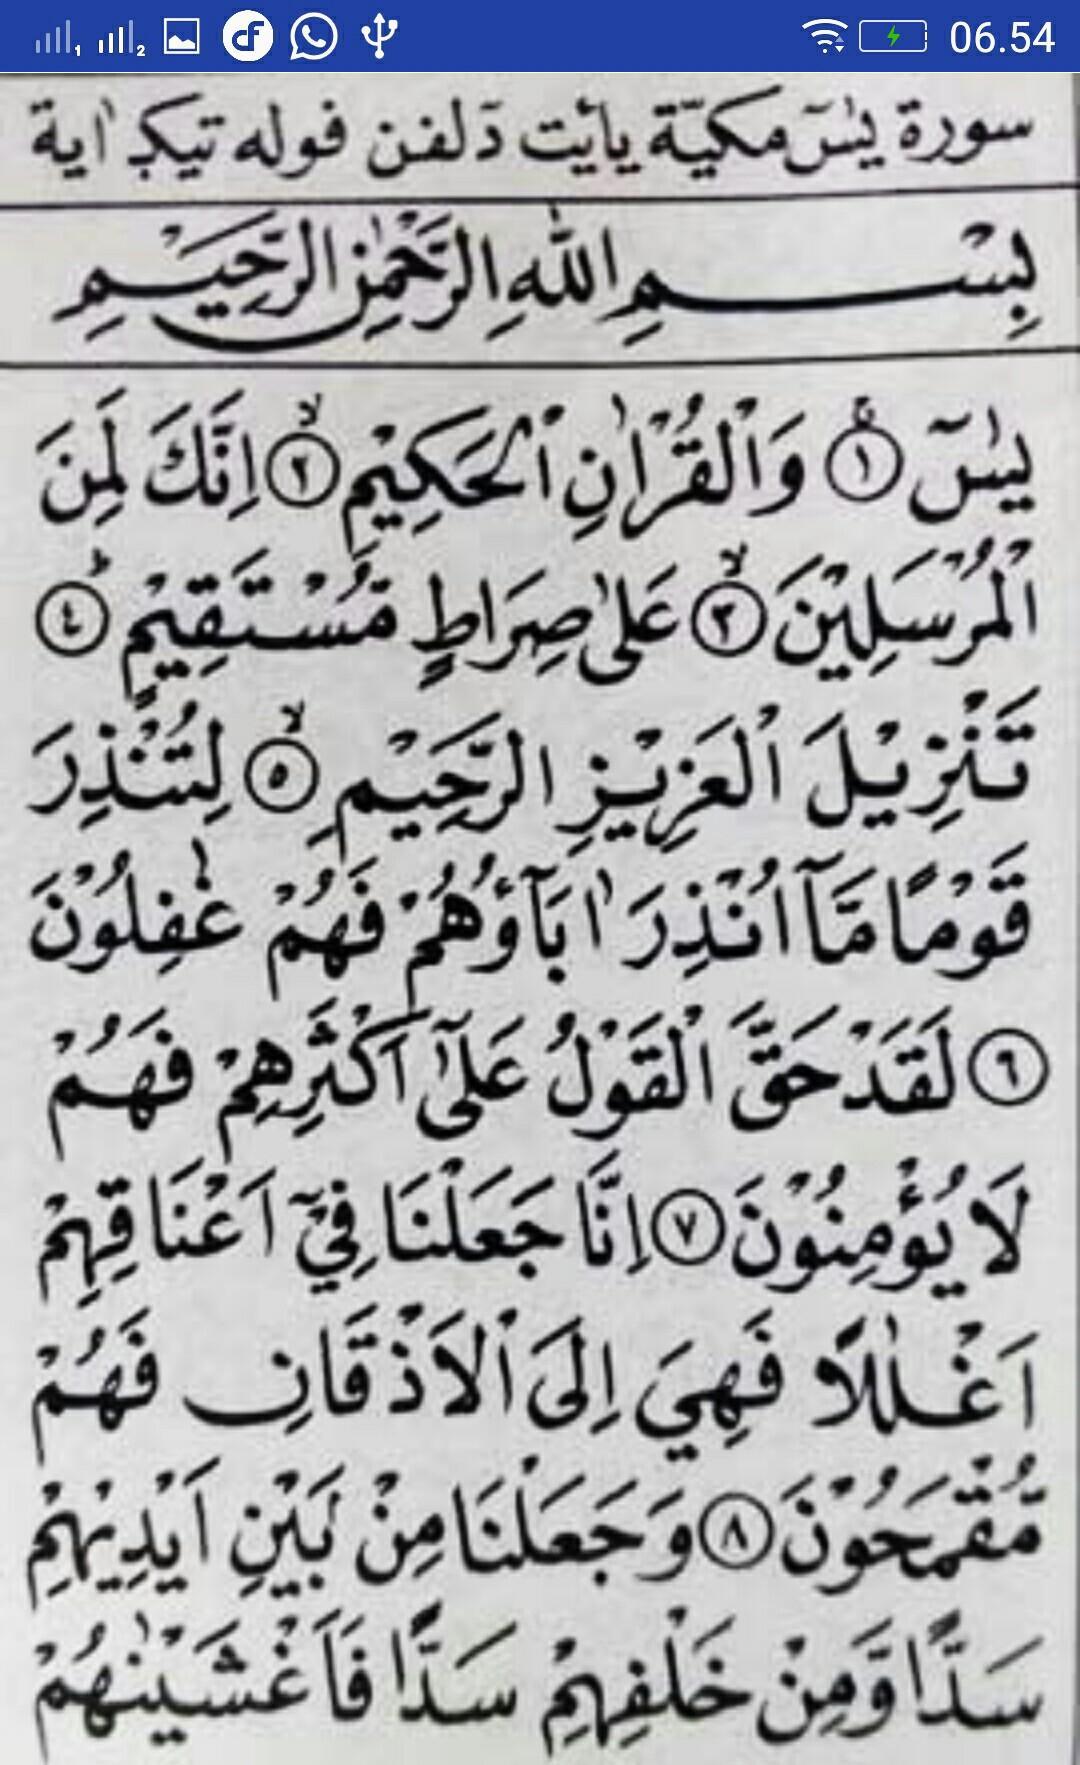 06.54
سورة يٰسٓ مكيّة يأيت دلفن فوله تيݢ اٰية
بِسْمِ اللّٰهِ الرَّحْمٰنِ الرَّحِيْمِ
يٰسٓ ۝١ وَالْقُرْاٰنِ الْحَكِيْمِ ۝٢ اِنَّكَ لَمِنَ
الْمُرْسَلِيْنَ ۝٣ عَلٰى صِرَاطٍ مُّسْتَقِيْمٍ ۝٤
تَنْزِيْلَ الْعَزِيْزِ الرَّحِيْمِ ۝٥ لِتُنْذِرَ
قَوْمًا مَّآ اُنْذِرَ اٰبَآؤُهُمْ فَهُمْ غٰفِلُوْنَ
۝٦ لَقَدْ حَقَّ الْقَوْلُ عَلٰٓى اَكْثَرِهِمْ فَهُمْ
لَا يُؤْمِنُوْنَ ۝٧ اِنَّا جَعَلْنَا فِيْٓ اَعْنَاقِهِمْ
اَغْلٰلًا فَهِيَ اِلَى الْاَذْقَانِ فَهُمْ
مُّقْمَحُوْنَ ۝٨ وَجَعَلْنَا مِنْ بَيْنِ اَيْدِيْهِمْ
سَدًّا وَّمِنْ خَلْفِهِمْ سَدًّا فَاَغْشَيْنٰهُمْ